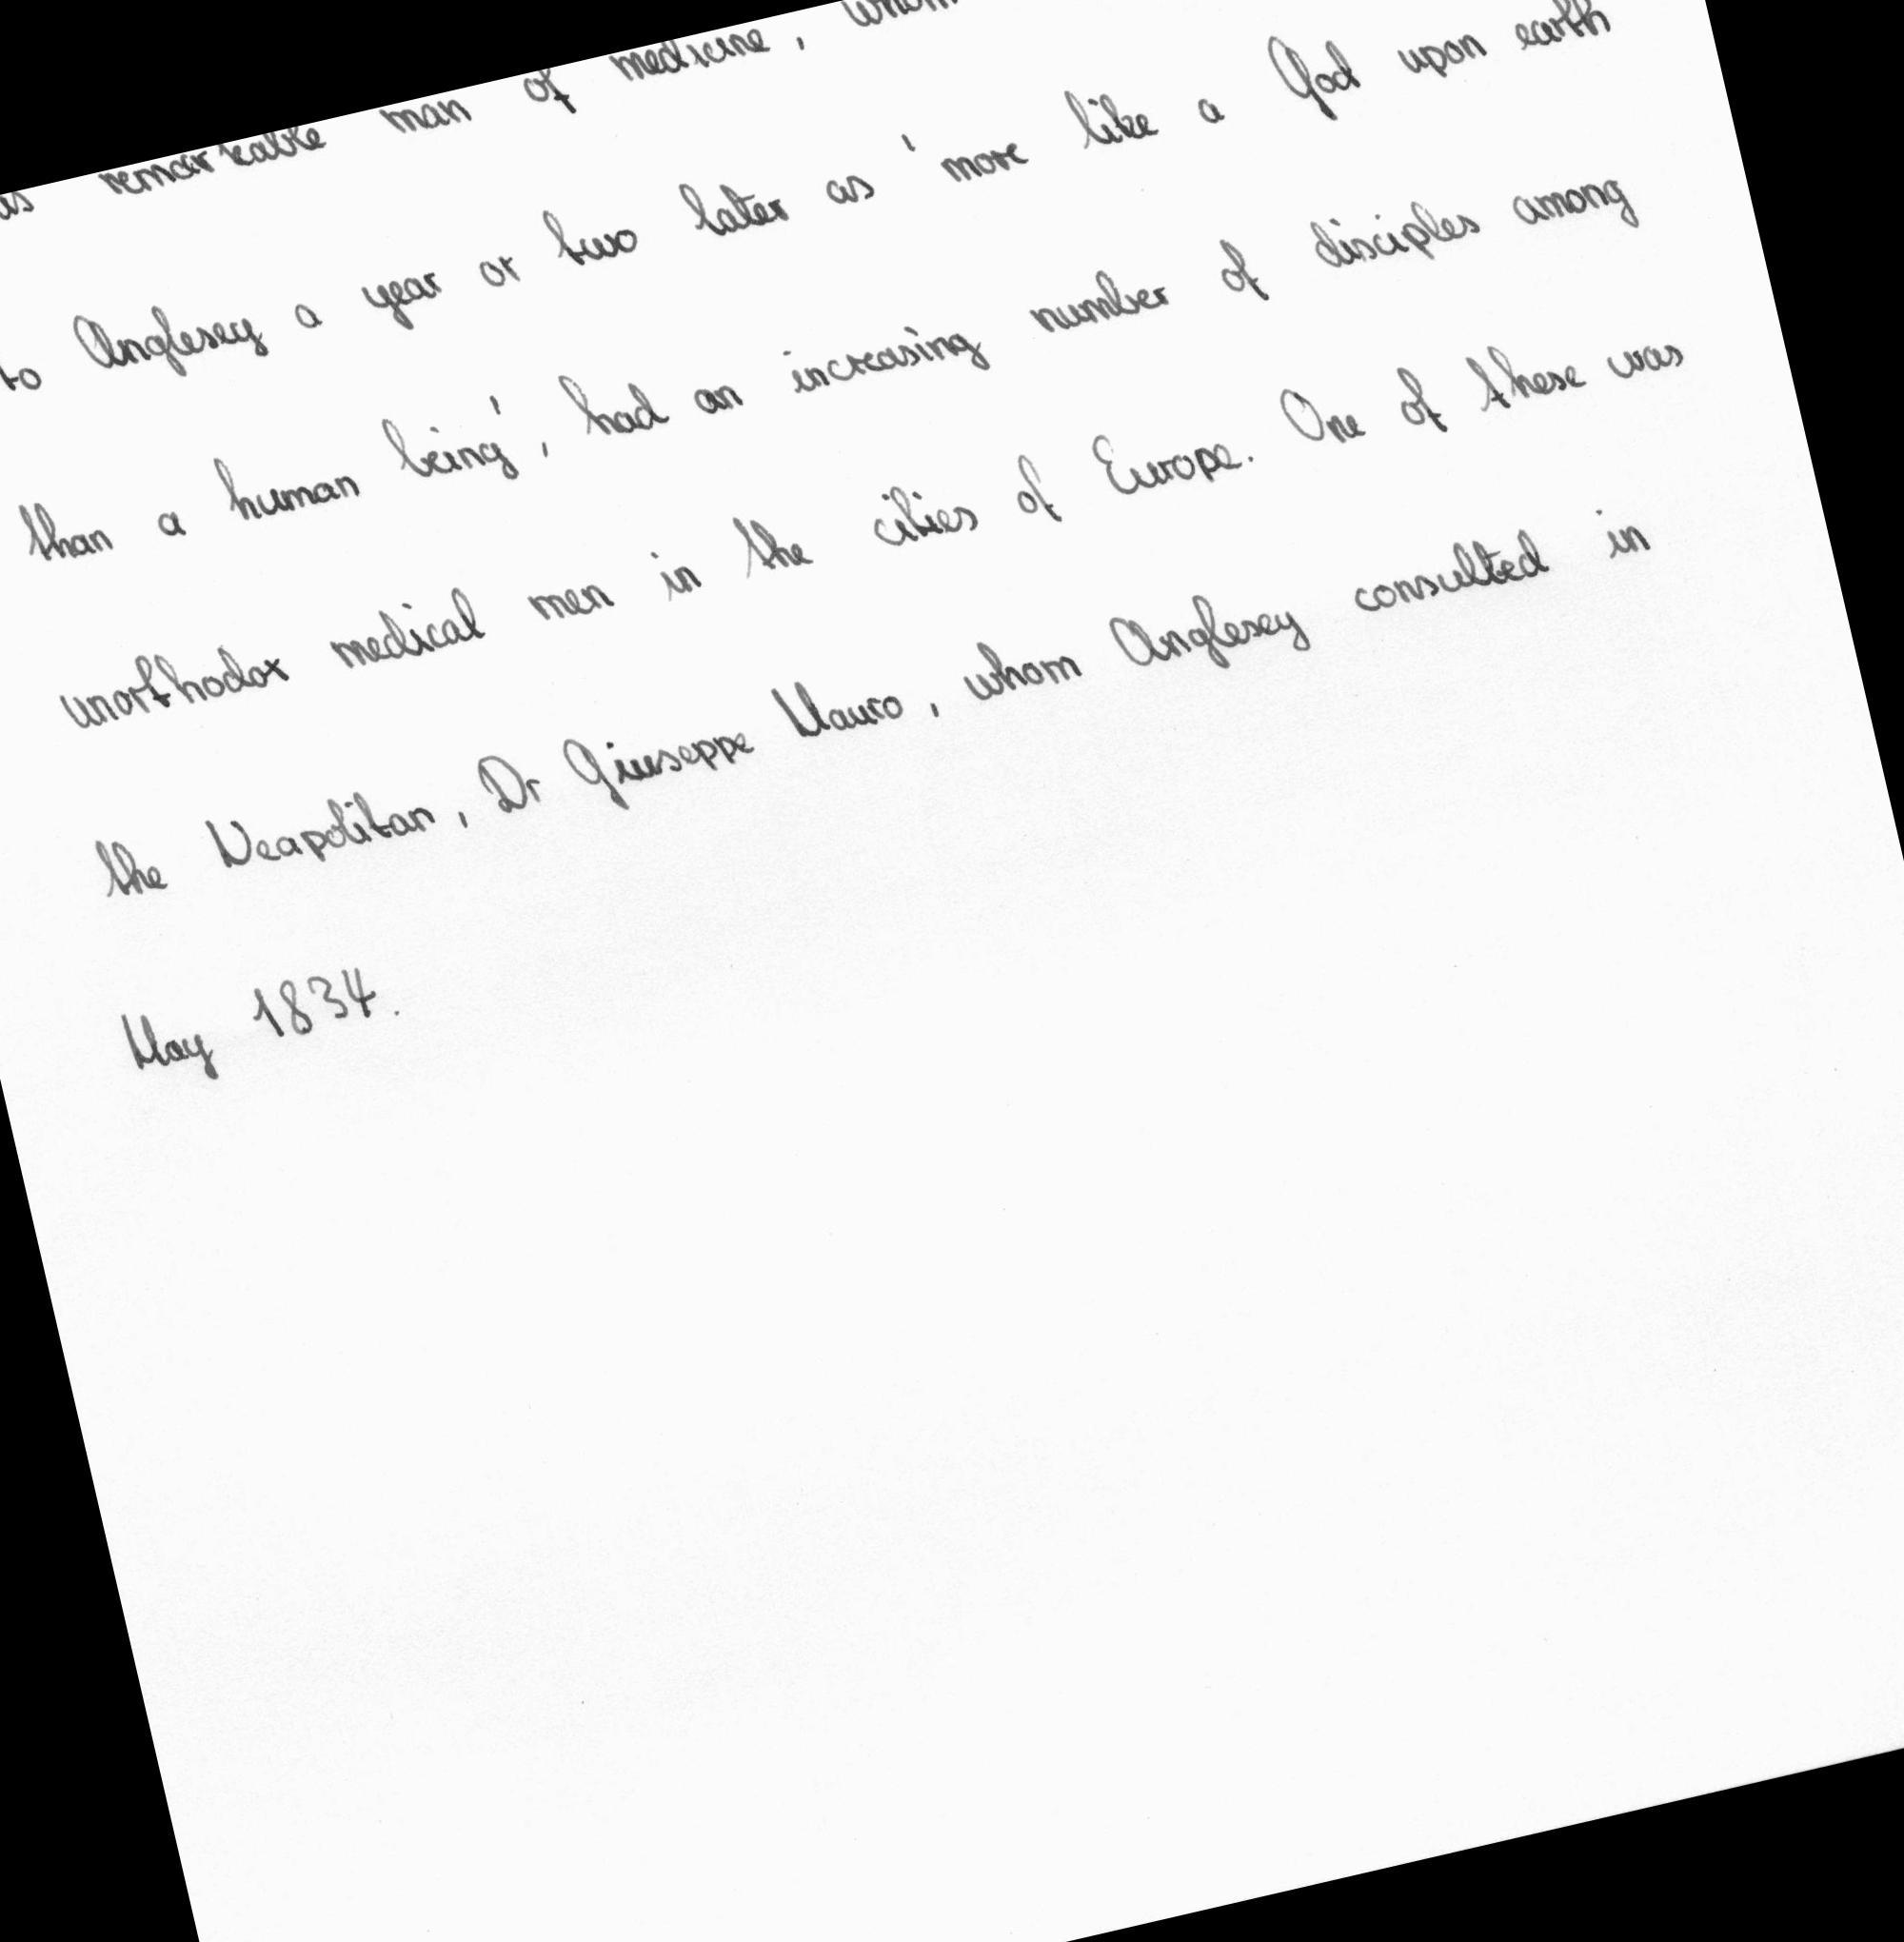 remarkable man of medicine, whom
to Anglesey a year or two later as 'more like a God upon earth
than a human being', had an increasing number of disciples among
unorthodox medical men in the cities of Europe. One of these was
the Neapolitan, Dr Giuseppe Mauro, whom Anglesey consulted in
May 1834.